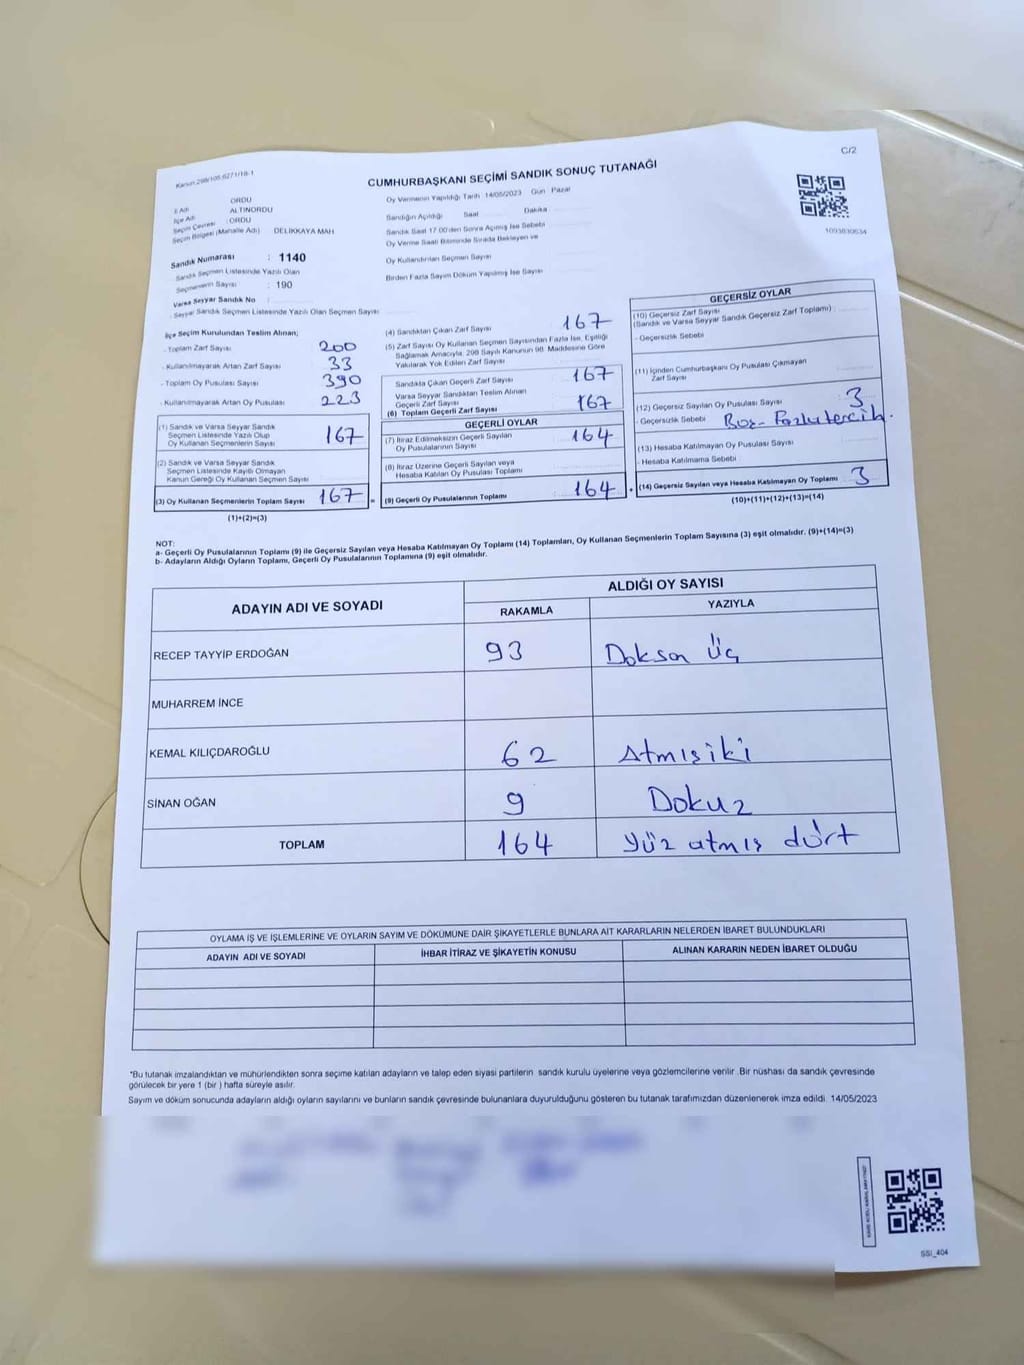 Kanun:298/105-6271/18-1
C/2
CUMHURBAŞKANI SEÇİMİ SANDIK SONUÇ TUTANAĞI
İl Adı ORDU
İlçe Adı ALTINORDU
Seçim Çevresi : ORDU
Seçim Bölgesi (Mahalle Adı) DELİKKAYA MAH
Sandık Numarası : 1140
Sandık Seçmen Listesinde Yazılı Olan
Seçmenlerin Sayısı : 190
Varsa Seyyar Sandık No :
- Seyyar Sandık Seçmen Listesinde Yazılı Olan Seçmen Sayısı
Oy Vermenin Yapıldığı Tarih 14/05/2023 Gün Pazar
Sandığın Açıldığı Saat Dakika
Sandık Saat 17.00'den Sonra Açılmış İse Sebebi
Oy Verme Saati Bitiminde Sırada Bekleyen ve
Oy Kullandırılan Seçmen Sayısı
Birden Fazla Sayım Döküm Yapılmış İse Sayısı
1093830634
İlçe Seçim Kurulundan Teslim Alınan;
- Toplam Zarf Sayısı 200
- Kullanılmayarak Artan Zarf Sayısı 33
- Toplam Oy Pusulası Sayısı 390
- Kullanılmayarak Artan Oy Pusulası 223
(1) Sandık ve Varsa Seyyar Sandık
Seçmen Listesinde Yazılı Olup
Oy Kullanan Seçmenlerin Sayısı 167
(2) Sandık ve Varsa Seyyar Sandık
Seçmen Listesinde Kayıtlı Olmayan
Kanun Gereği Oy Kullanan Seçmen Sayısı
(3) Oy Kullanan Seçmenlerin Toplam Sayısı 167 =
(1)+(2)=(3)
(4) Sandıktan Çıkan Zarf Sayısı 167
(5) Zarf Sayısı Oy Kullanan Seçmen Sayısından Fazla İse, Eşitliği
Sağlamak Amacıyla, 298 Sayılı Kanunun 98. Maddesine Göre
Yakılarak Yok Edilen Zarf Sayısı
Sandıkta Çıkan Geçerli Zarf Sayısı 167
Varsa Seyyar Sandıktan Teslim Alınan
Geçerli Zarf Sayısı
(6) Toplam Geçerli Zarf Sayısı 167
GEÇERLİ OYLAR
(7) İtiraz Edilmeksizin Geçerli Sayılan
Oy Pusulası Sayısı 164
(8) İtiraz Üzerine Geçerli Sayılan veya
Hesaba Katılan Oy Pusulası Toplamı
(9) Geçerli Oy Pusulalarının Toplamı 164 +
GEÇERSİZ OYLAR
(10) Geçersiz Zarf Sayısı
(Sandık ve Varsa Seyyar Sandık Geçersiz Zarf Toplamı) :
- Geçersizlik Sebebi
(11) İçinden Cumhurbaşkanı Oy Pusulası Çıkmayan
Zarf Sayısı
(12) Geçersiz Sayılan Oy Pusulası Sayısı 3
- Geçersizlik Sebebi Boş- Fazla tercih.
(13) Hesaba Katılmayan Oy Pusulası Sayısı
- Hesaba Katılmama Sebebi
(14) Geçersiz Sayılan veya Hesaba Katılmayan Oy Toplamı 3
(10)+(11)+(12)+(13)=(14)
NOT:
a- Geçerli Oy Pusulalarının Toplamı (9) ile Geçersiz Sayılan veya Hesaba Katılmayan Oy Toplamı (14) Toplamları, Oy Kullanan Seçmenlerin Toplam Sayısına (3) eşit olmalıdır. (9)+(14)=(3)
b- Adayların Aldığı Oyların Toplamı, Geçerli Oy Pusulalarının Toplamına (9) eşit olmalıdır.
ADAYIN ADI VE SOYADI
ALDIĞI OY SAYISI
RAKAMLA YAZIYLA
RECEP TAYYİP ERDOĞAN 93 Doksan Üç
MUHARREM İNCE
KEMAL KILIÇDAROĞLU 62 Atmışiki
SİNAN OĞAN 9 Dokuz
TOPLAM 164 Yüz atmış dört
OYLAMA İŞ VE İŞLEMLERİNE VE OYLARIN SAYIM VE DÖKÜMÜNE DAİR ŞİKAYETLERLE BUNLARA AİT KARARLARIN NELERDEN İBARET BULUNDUKLARI
ADAYIN ADI VE SOYADI İHBAR İTİRAZ VE ŞİKAYETİN KONUSU ALINAN KARARIN NEDEN İBARET OLDUĞU
*Bu tutanak imzalandıktan ve mühürlendikten sonra seçime katılan adayların ve talep eden siyasi partilerin sandık kurulu üyelerine veya gözlemcilerine verilir .Bir nüshası da sandık çevresinde
görülecek bir yere 1 (bir ) hafta süreyle asılır.
Sayım ve döküm sonucunda adayların aldığı oyların sayılarını ve bunların sandık çevresinde bulunanlara duyurulduğunu gösteren bu tutanak tarafımızdan düzenlenerek imza edildi. 14/05/2023
SSI_404